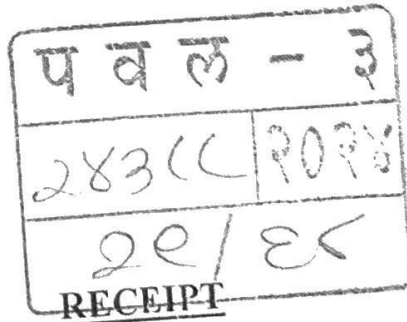 प व ल - ३
२४३८८ २०२४
२९/६८
RECEIPT